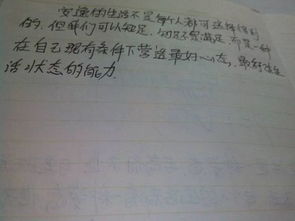 安逸的生活不是每个人都可选择得到
的，但我们可以知足，知足不是满足，而是一种
在自己现有条件下营造最好心态，最舒适生
活状态的能力